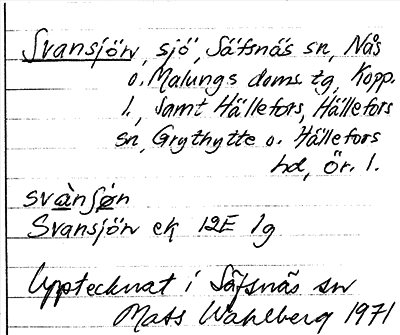 Svansjön, sjö, Säfsnäs sn, Nås
o. Malungs doms. tg, Kopp.
l., samt Hällefors, Hällefors
sn, Grythytte o. Hällefors
hd, Ör. l.
svànʃø̀n
Svansjön ek 12E 1g
Upptecknat i Säfsnäs sn
Mats Wahlberg 1971